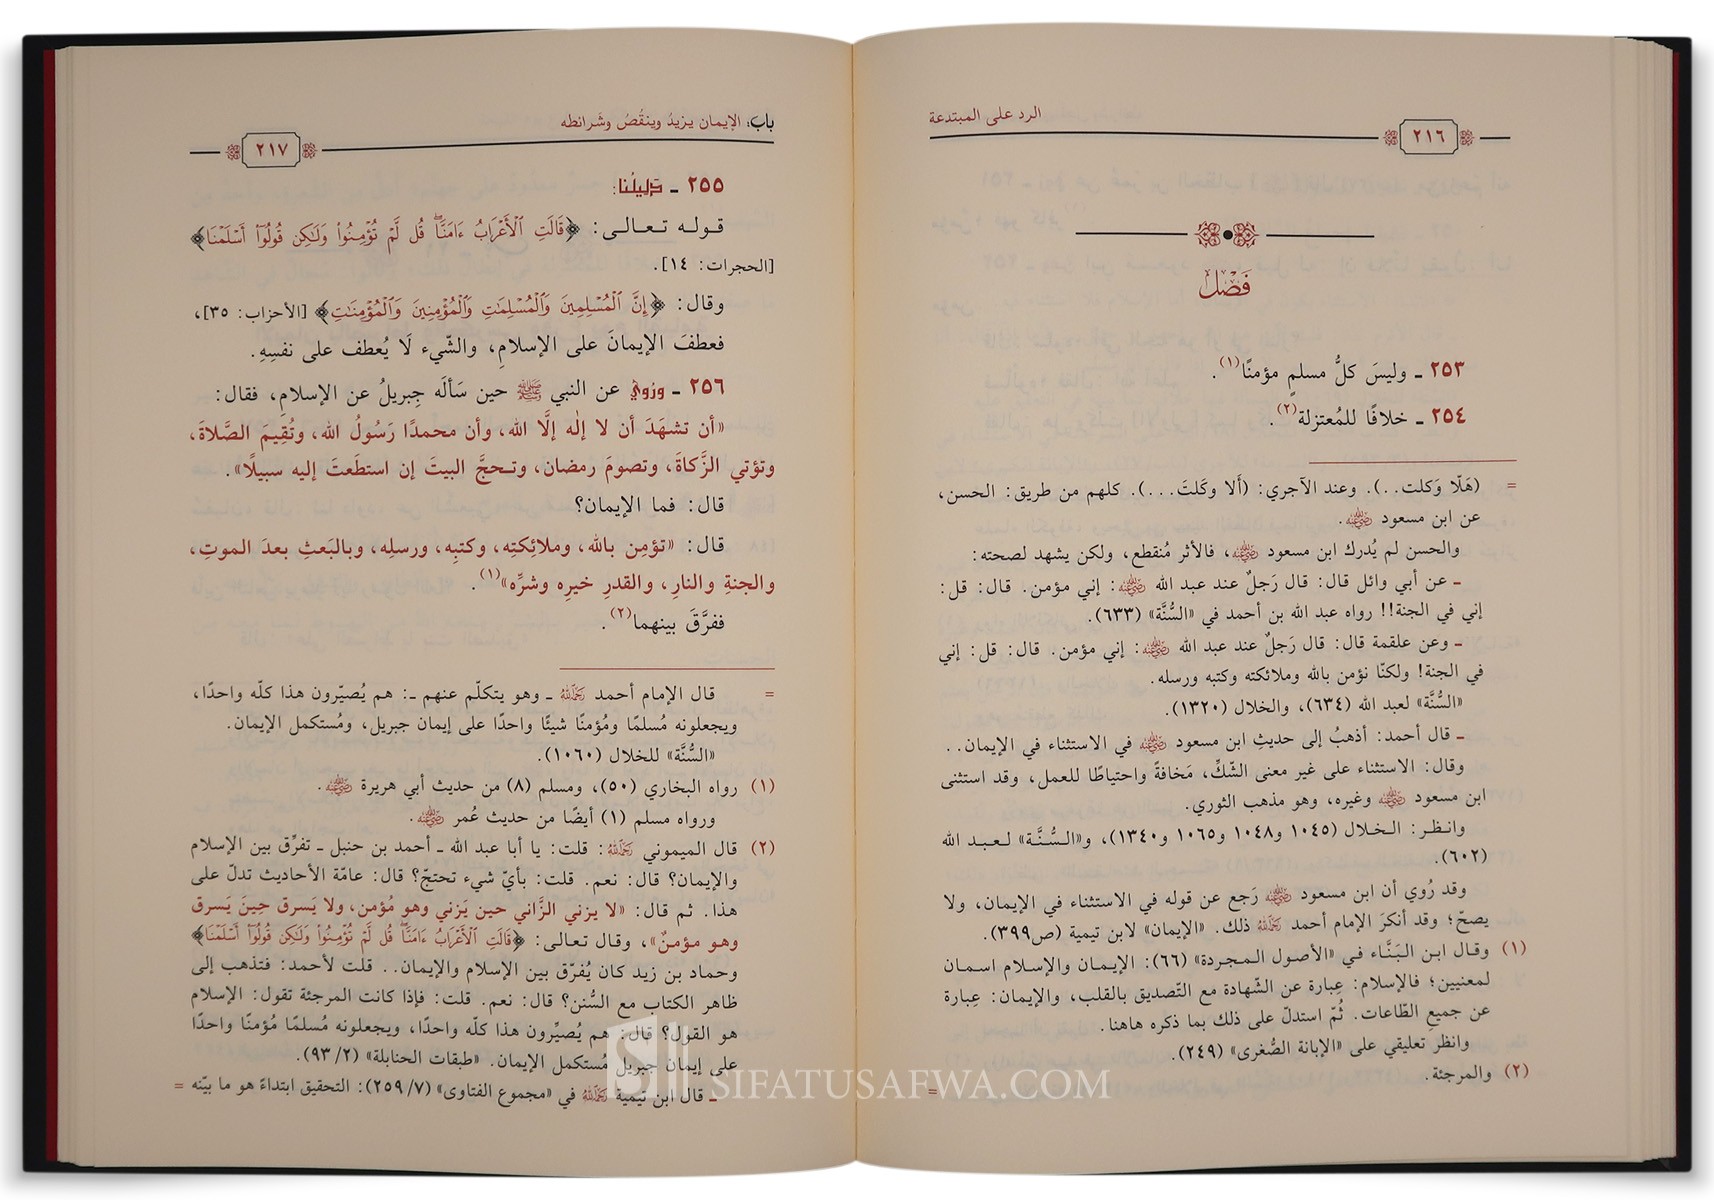 الرد على المبتدعة
٢١٦
فَصْل
٢٥٣ ـ وليسَ كلُّ مسلمٍ مؤمنًا(١).
٢٥٤ ـ خلافًا للمُعتزلة(٢).
= (هَلّا وَكلت..). وعند الآجري: (أَلا وكَلتَ...). كلهم من طريق: الحسن،
عن ابن مسعود رضي الله عنه.
والحسن لم يُدرك ابن مسعود رضي الله عنه، فالأثر مُنقطع، ولكن يشهد لصحته:
ـ عن أبي وائل قال: قال رَجلٌ عند عبد الله رضي الله عنه: إني مؤمن. قال: قل:
إني في الجنة!! رواه عبد الله بن أحمد في «السُّنَّة» (٦٣٣).
ـ وعن علقمة قال: قال رَجلٌ عند عبد الله رضي الله عنه: إني مؤمن. قال: قل: إني
في الجنة! ولكنّا نؤمن بالله وملائكته وكتبه ورسله.
«السُّنَّة» لعبد الله (٦٣٤)، والخلال (١٣٢٠).
ـ قال أحمد: أذهبُ إلى حديثِ ابن مسعود رضي الله عنه في الاستثناء في الإيمان..
وقال: الاستثناء على غير معنى الشّكِّ، مَخافةً واحتياطًا للعمل، وقد استثنى
ابن مسعود رضي الله عنه وغيره، وهو مذهب الثوري.
وانظر: الخلال (١٠٤٥ و١٠٤٨ و١٠٦٥ و١٣٤٠)، و«السُّنَّة» لعبد الله
(٦٠٢).
وقد رُوي أن ابن مسعود رضي الله عنه رَجع عن قوله في الاستثناء في الإيمان، ولا
يصحّ؛ وقد أنكرَ الإمام أحمد رحمه الله ذلك. «الإيمان» لابن تيمية (ص٣٩٩).
(١) وقال ابن البَنَّاء في «الأصول المجردة» (٦٦): الإيمان والإسلام اسمان
لمعنيين؛ فالإسلام: عِبارة عن الشّهادة مع التّصديق بالقلب، والإيمان: عِبارة
عن جميعِ الطّاعات. ثُمّ استدلّ على ذلك بما ذكره هاهنا.
وانظر تعليقي على «الإبانة الصُّغرى» (٢٤٩).
(٢) والمرجئة.
=
باب: الإيمان يزيدُ وينقُصُ وشرائطه
٢١٧
٢٥٥ ـ دَلِيلُنا:
قوله تعالى: ﴿قَالَتِ ٱلْأَعْرَابُ ءَامَنَّاۖ قُل لَّمْ تُؤْمِنُوا۟ وَلَٰكِن قُولُوٓا۟ أَسْلَمْنَا﴾
[الحجرات: ١٤].
وقال: ﴿إِنَّ ٱلْمُسْلِمِينَ وَٱلْمُسْلِمَٰتِ وَٱلْمُؤْمِنِينَ وَٱلْمُؤْمِنَٰتِ﴾ [الأحزاب: ٣٥]،
فعطفَ الإيمانَ على الإسلامِ، والشّيء لَا يُعطف على نفسِهِ.
٢٥٦ ـ ورُويَ عن النبي ﷺ حين سَألَه جِبريلُ عن الإسلامِ، فقال:
«أن تشهَدَ أن لا إلٰه إلَّا الله، وأن محمدًا رَسُولُ الله، وتُقِيمَ الصَّلاةَ،
وتؤتي الزَّكاةَ، وتصومَ رمضان، وتحجَّ البيتَ إن استطَعتَ إليه سبيلًا».
قال: فما الإيمان؟
قال: «تؤمِن بالله، وملائكتِه، وكتبِه، ورسلِه، وبالبَعثِ بعدَ الموتِ،
والجنةِ والنارِ، والقدرِ خيرِه وشرِّه»(١).
ففرَّقَ بينهما(٢).
= قال الإمام أحمد رحمه الله ـ وهو يتكلّم عنهم ـ: هم يُصيّرون هذا كلّه واحدًا،
ويجعلونه مُسلمًا ومُؤمنًا شيئًا واحدًا على إيمان جبريل، ومُستكمل الإيمان.
«السُّنَّة» للخلال (١٠٦٠).
(١) رواه البخاري (٥٠)، ومسلم (٨) من حديث أبي هريرة رضي الله عنه.
ورواه مسلم (١) أيضًا من حديث عُمر رضي الله عنه.
(٢) قال الميموني رحمه الله: قلت: يا أبا عبد الله ـ أحمد بن حنبل ـ تفرِّق بين الإسلام
والإيمان؟ قال: نعم. قلت: بأيّ شيء تحتجّ؟ قال: عامّة الأحاديث تدلّ على
هذا. ثم قال: «لا يزني الزَّاني حين يَزني وهو مُؤمن، ولا يَسرق حِينَ يَسرق
وهو مؤمنٌ»، وقال تعالى: ﴿قَالَتِ ٱلْأَعْرَابُ ءَامَنَّاۖ قُل لَّمْ تُؤْمِنُوا۟ وَلَٰكِن قُولُوٓا۟ أَسْلَمْنَا﴾
وحماد بن زيد كان يُفرّق بين الإسلام والإيمان.. قلت لأحمد: فتذهب إلى
ظاهر الكتاب مع السُّنن؟ قال: نعم. قلت: فإذا كانت المرجئة تقول: الإسلام
هو القول؟ قال: هم يُصيِّرون هذا كلّه واحدًا، ويجعلونه مُسلمًا مُؤمنًا واحدًا
على إيمان جبريل مُستكمل الإيمان. «طبقات الحنابلة» (٢/ ٩٣).
ـ قال ابن تيمية رحمه الله في «مجموع الفتاوى» (٧/ ٢٥٩): التحقيق ابتداءً هو ما بيّنه =
SIFATUSAFWA.COM